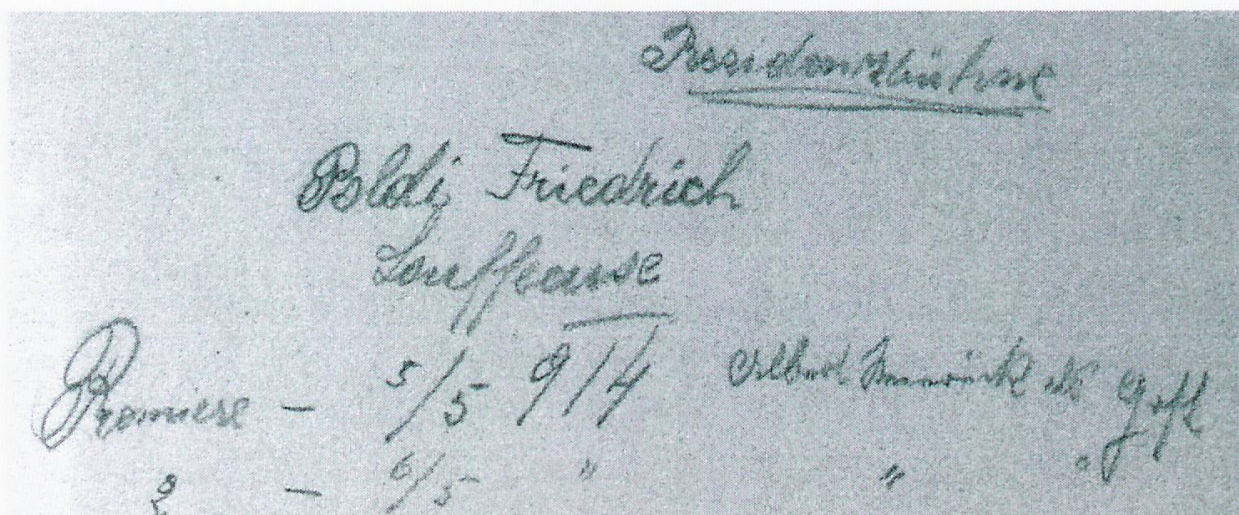 Residenzbühne
Poldi Friedrich
Premiere – 5/5 914 Albert Steinrück als Gast
2 – 6/5 " " "